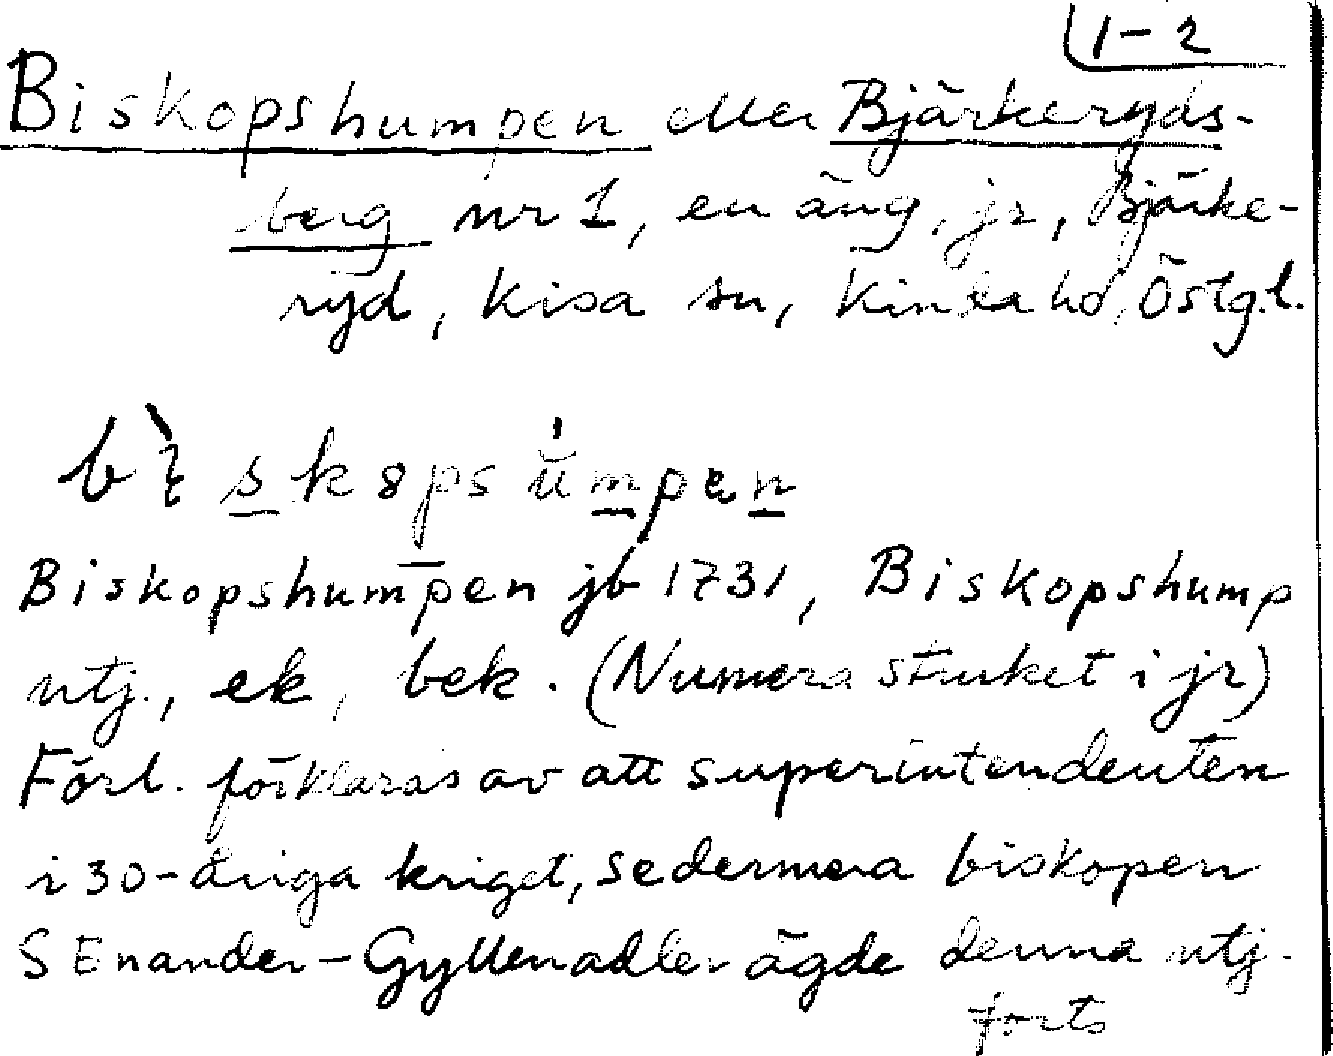 1-2
Biskopshumpen eller Bjärkeryds-
berg nr 1, en äng, jr, Bjärke-
ryd, Kisa sn, Kinda hd, Östg.l.
Biskopshumpen jb 1731, Biskopshump
utj., ek, bek. (Numera struket i jr)
Förl. förklaras av att superintendenten
i 30-åriga kriget, sedermera biskopen
S Enander-Gyllenadler ägde denna utj.
forts